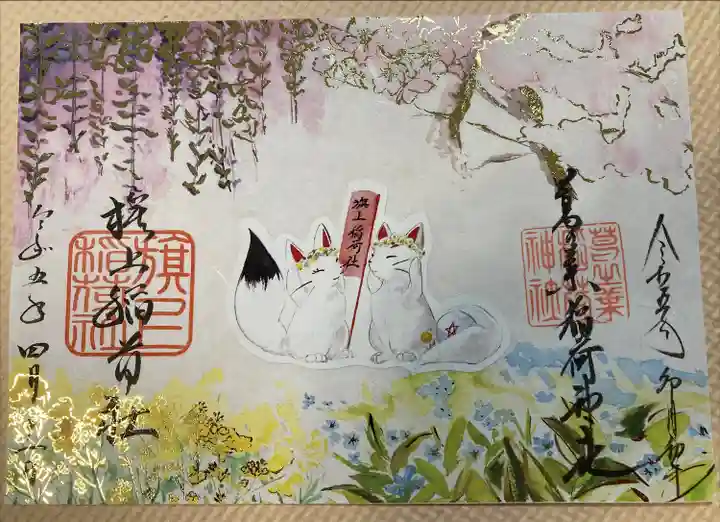 令和五年 卯月初午
葛の葉稲荷神社
葛之葉
稲荷
神社
旗上稲荷社
旗上稲荷社
旗上
稲荷社
令和五年四月